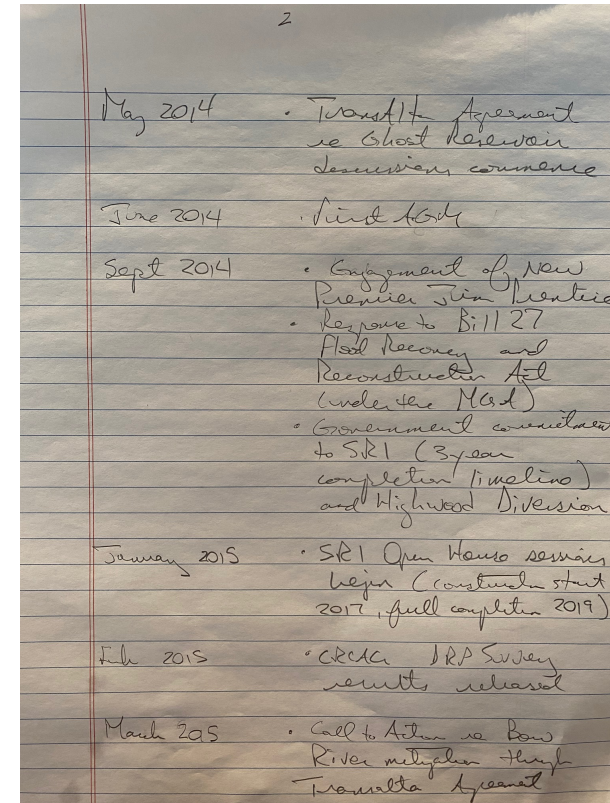 2
May 2014 • TransAlta Agreement
re Ghost Reservoir
discussions commence
June 2014 • First AGM
Sept 2014 • Engagement of New
Premier Jim Prentice
• Response to Bill 27
Flood Recovery and
Reconstruction Act
(under the MGA)
• Government commitment
to SR1 (3-year
completion timeline)
and Highwood Diversion
January 2015 • SR1 Open House sessions
begin (construction start
2017, full completion 2019)
Feb 2015 • CRCAG DRP Survey
results released
March 2015 • Call to Action re Bow
River mitigation through
Transalta Agreement